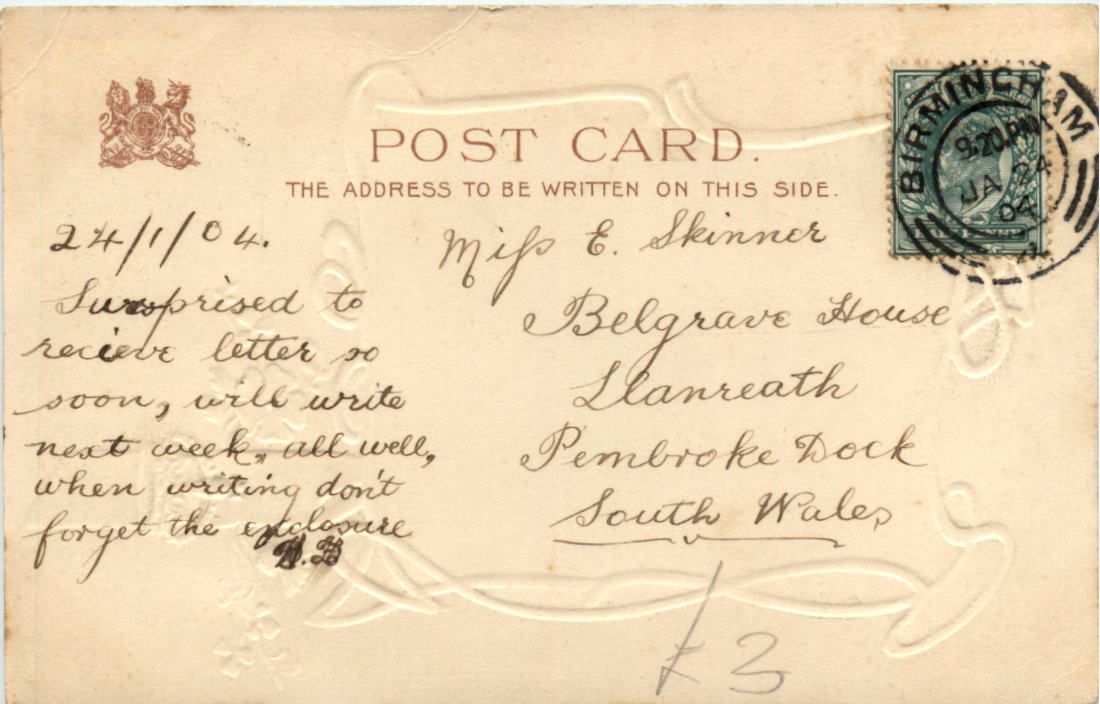 POST CARD.
THE ADDRESS TO BE WRITTEN ON THIS SIDE.
BIRMINGHAM
9.20.PM
JA 24
04
24/1/04.
Surprised to
recieve letter so
soon, will write
next week, all well,
when writing don't
forget the enclosure
Miss E. Skinner
Belgrave House
Llanreath
Pembroke Dock
South Wales
£3